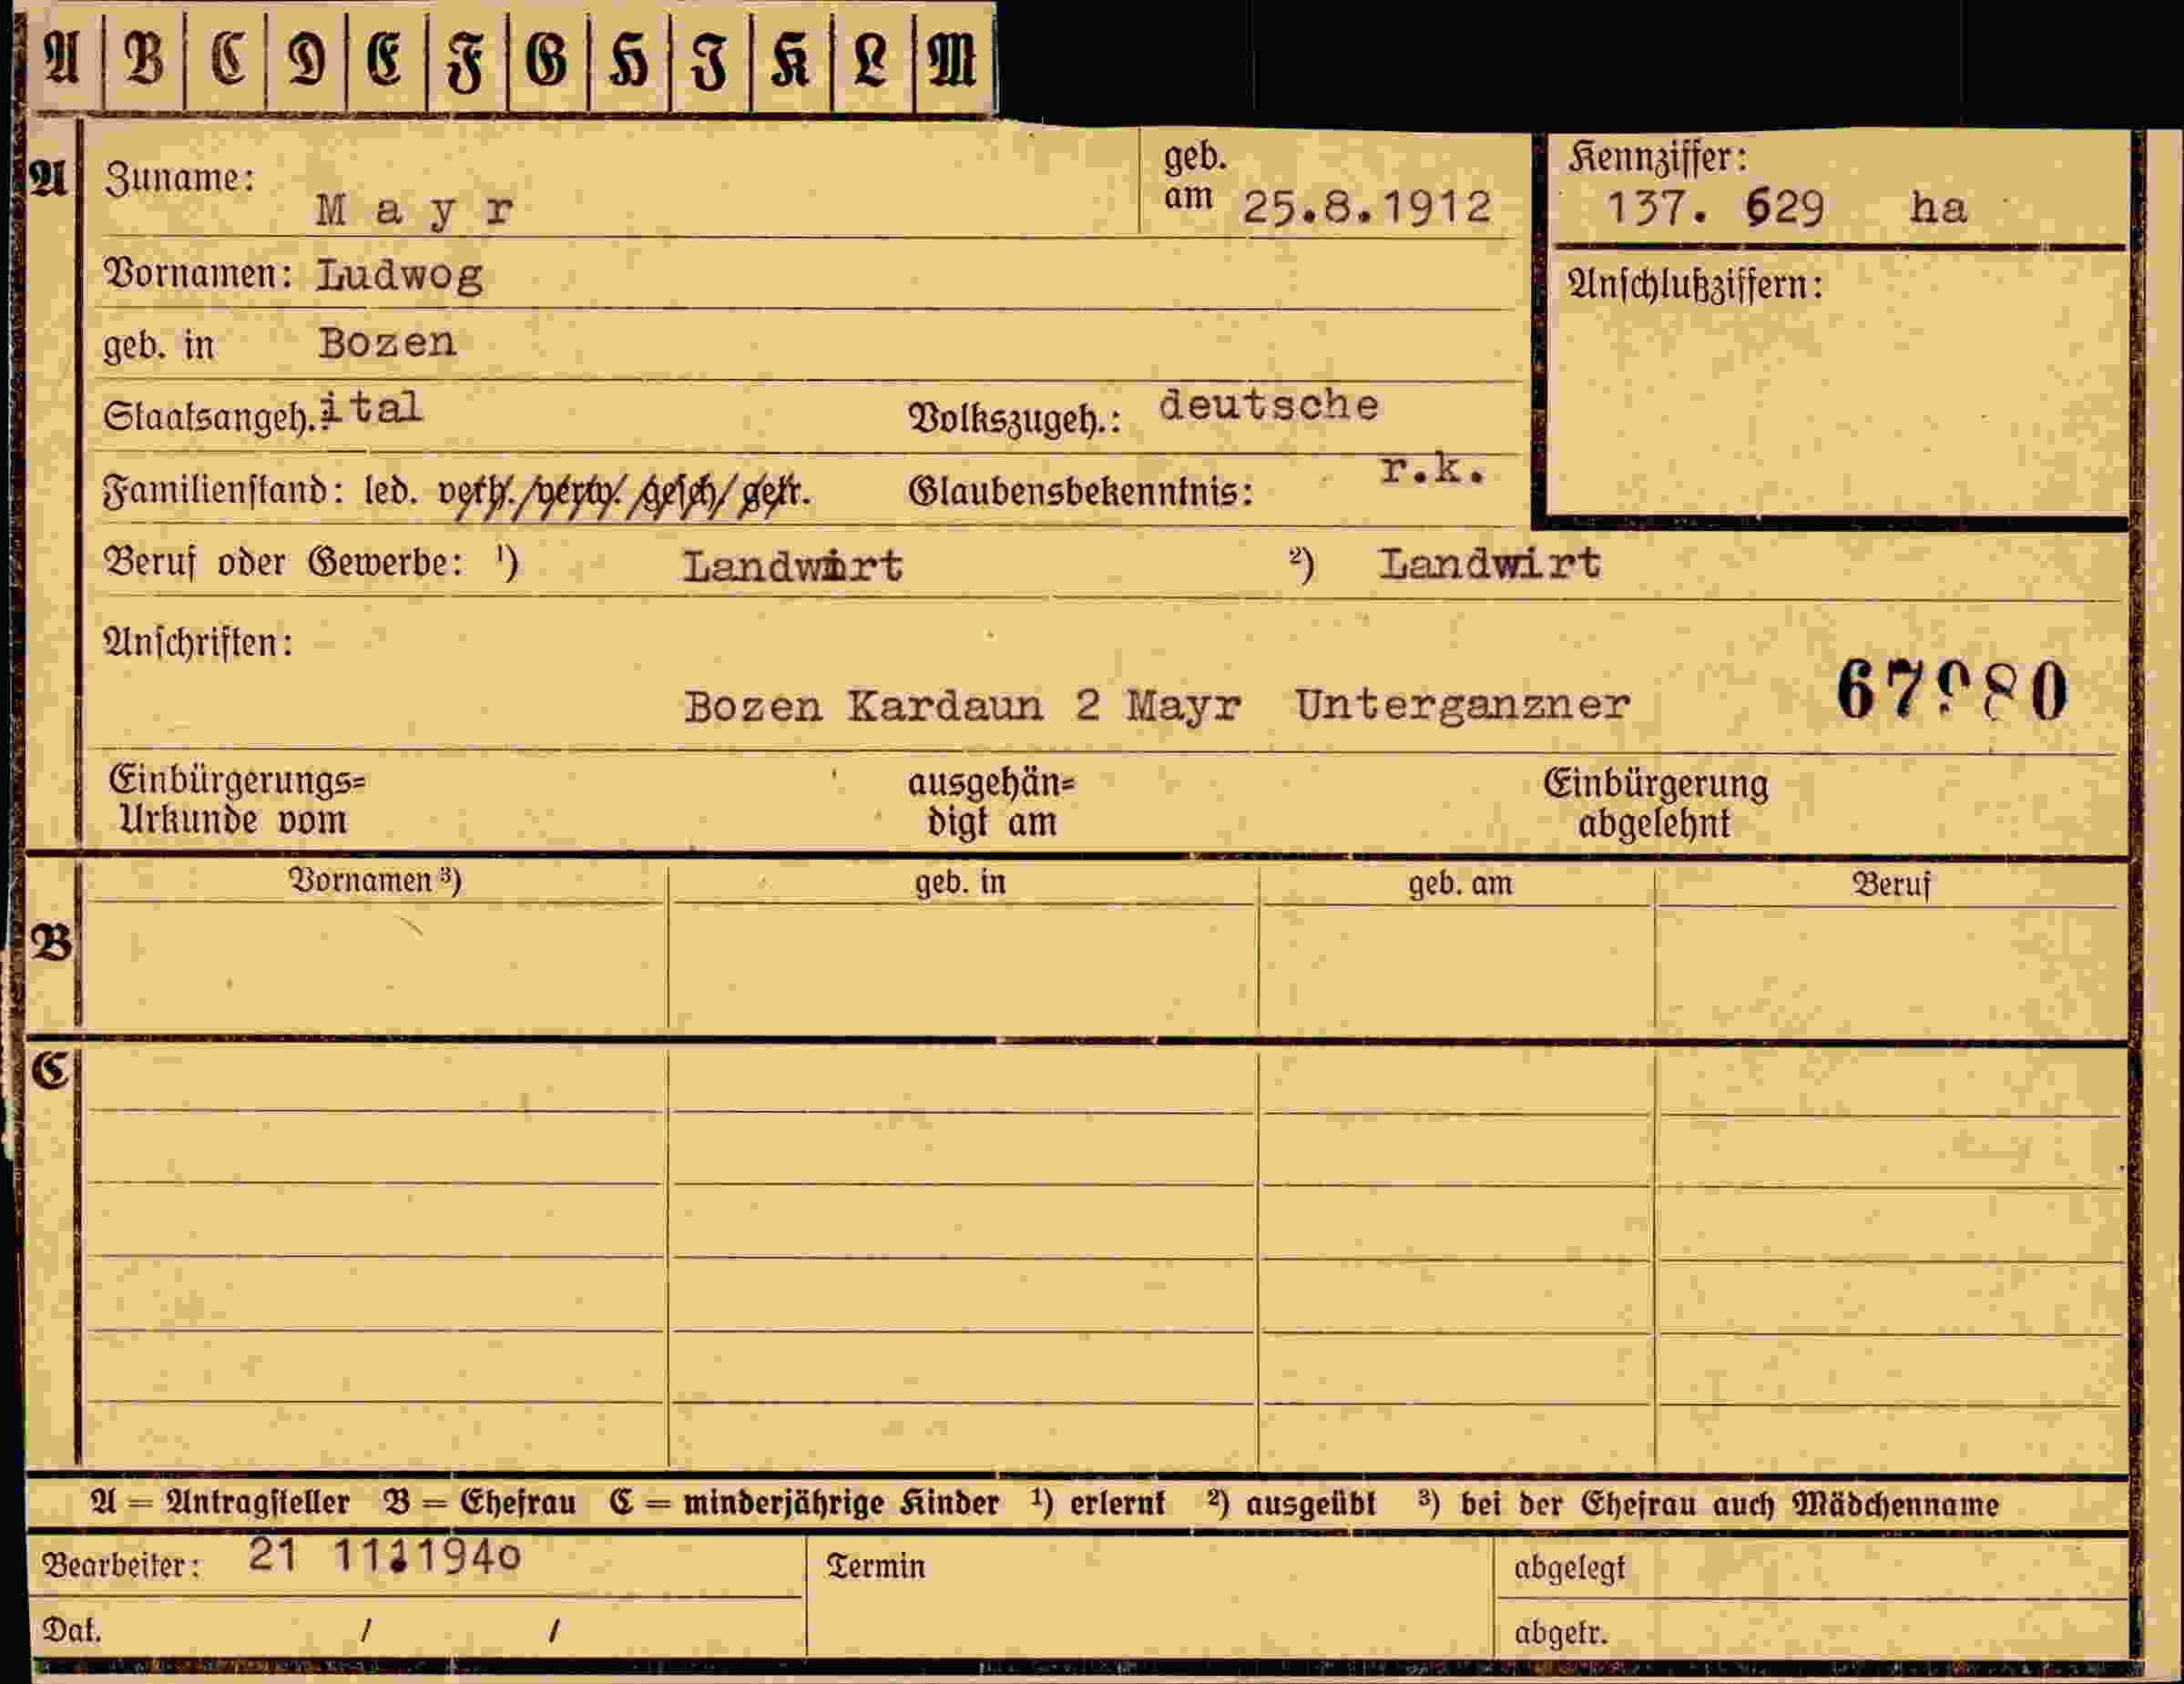 A B C D E F G H I K L M
A Zuname: Mayr geb. am 25.8.1912 Kennziffer: 137. 629 ha
Vornamen: Ludwog Anschlußziffern:
geb. in Bozen
Staatsangeh.: ital Volkszugeh.: deutsche
Familienstand: led. verh./verw./gesch/getr. Glaubensbekenntnis: r.k.
Beruf oder Gewerbe: ¹) Landwirt ²) Landwirt
Anschriften:
Bozen Kardaun 2 Mayr Unterganzner
Einbürgerungs= ausgehän= Einbürgerung
Urkunde vom digt am abgelehnt
Vornamen ³) geb. in geb. am Beruf
B
C
A = Antragsteller B = Ehefrau C = minderjährige Kinder ¹) erlernt ²) ausgeübt ³) bei der Ehefrau auch Mädchenname
Bearbeiter: 21 11.1940 Termin abgelegt
Dat. / / abgetr.